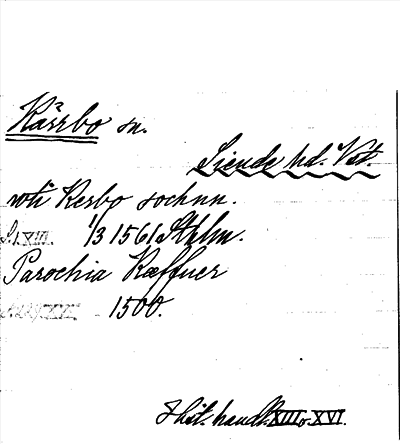 Kärrbo sn.
Siende hd. Vst.
wti Kerbo sochnn.
1/3 1561 Sthlm.
Parochia Kæffuer
1500.
Hist. handl. XIII o. XVI.